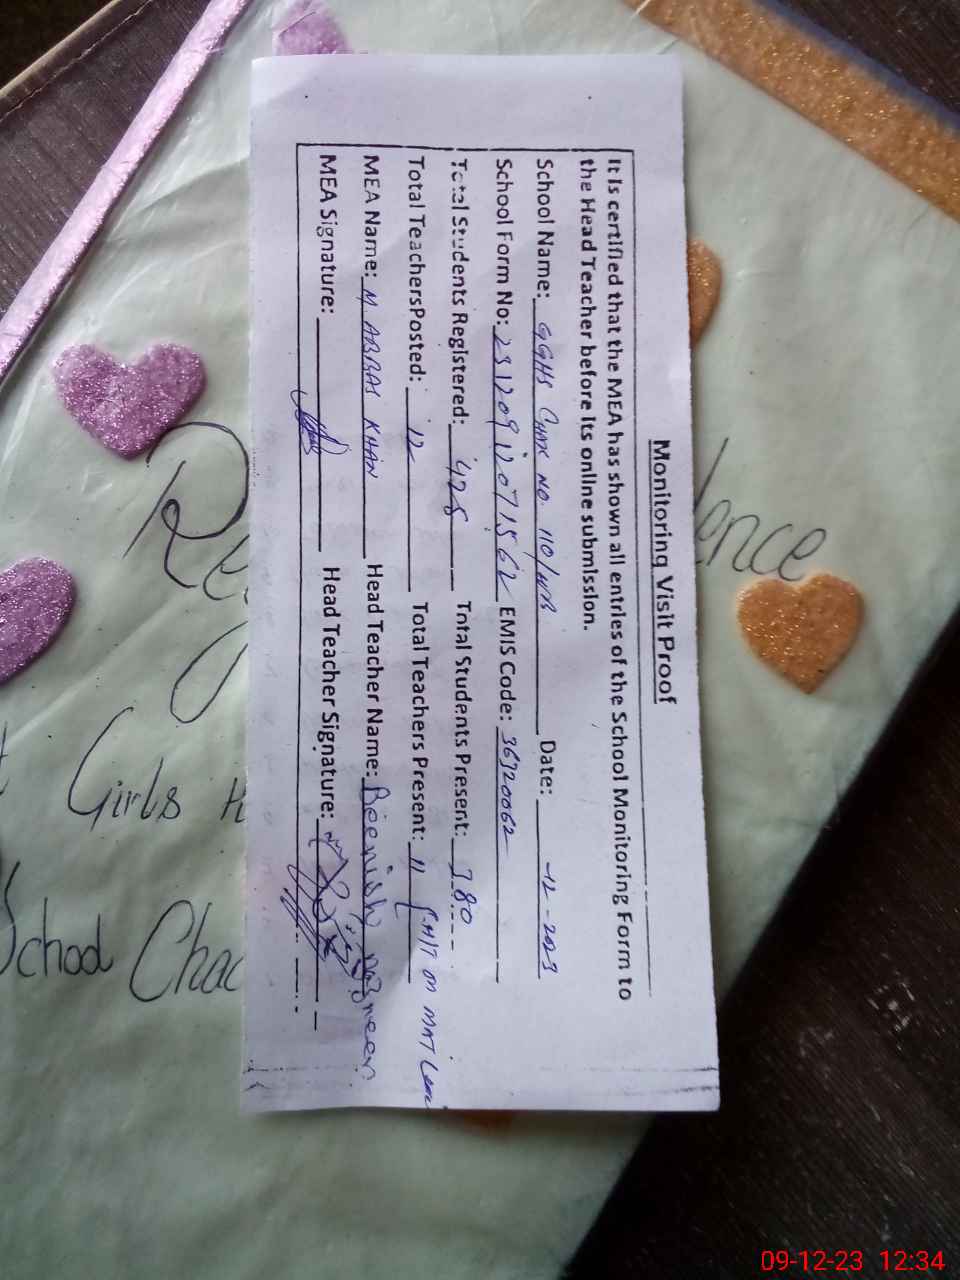 Monitoring Visit Proof
It is certified that the MEA has shown all entries of the School Monitoring Form to
the Head Teacher before its online submission.
School Name: GGHS Chak No. 110/WB Date: -12-2023
School Form No: 23120912071562 EMIS Code: 36320062
Total Students Registered: 425 Total Students Present: 380
Total TeachersPosted: 12 Total Teachers Present: 11 on MAT
MEA Name: M ABBAS KHAN Head Teacher Name: Beenish
MEA Signature: Head Teacher Signature:
Girls H
School Chac
09-12-23 12:34